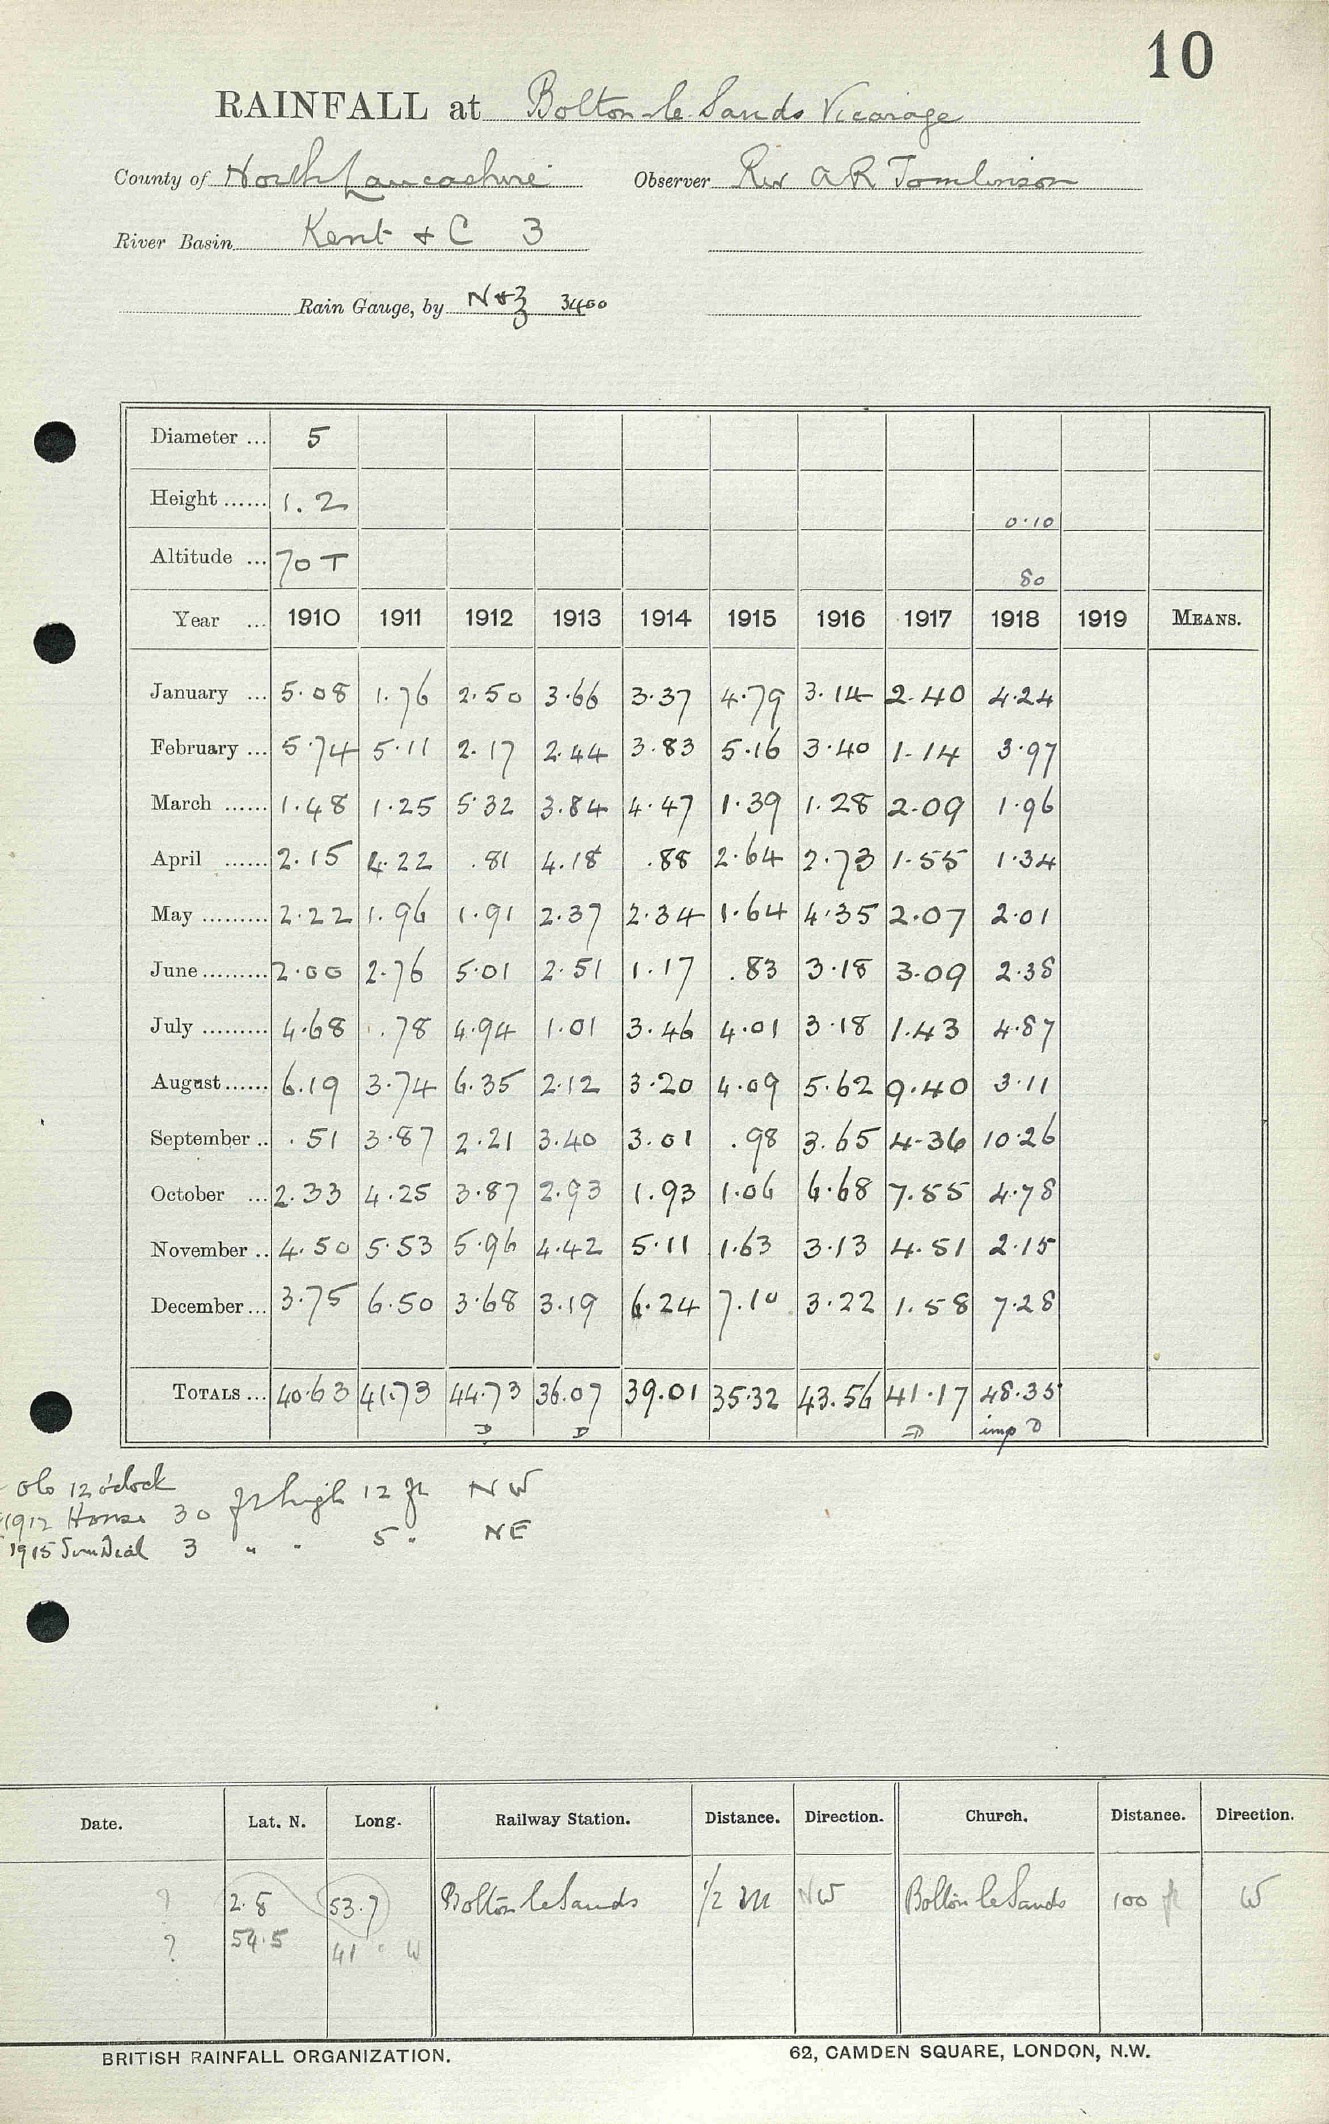 10
RAINFALL at Bolton-le-Sands Vicarage
County of North Lancashire Observer Rev A R Tomlinson
River Basin Kent & C 3
Rain Gauge, by N & Z 3400
Diameter ... 5
Height ...... 1.2 0.10
Altitude ... 70 T 80
Year ... 1910 1911 1912 1913 1914 1915 1916 1917 1918 1919 MEANS.
January ... 5.08 1.76 2.50 3.66 3.37 4.79 3.14 2.40 4.24
February ... 5.74 5.11 2.17 2.44 3.83 5.16 3.40 1.14 3.97
March ...... 1.48 1.25 5.32 3.84 4.47 1.39 1.28 2.09 1.96
April ...... 2.15 4.22 .81 4.18 .88 2.64 2.73 1.55 1.34
May ......... 2.22 1.96 1.91 2.37 2.34 1.64 4.35 2.07 2.01
June ......... 2.00 2.76 5.01 2.51 1.17 .83 3.18 3.09 2.38
July ......... 4.68 .78 4.94 1.01 3.46 4.01 3.18 1.43 4.87
August ...... 6.19 3.74 6.35 2.12 3.20 4.09 5.62 9.40 3.11
September .. .51 3.87 2.21 3.40 3.01 .98 3.65 4.36 10.26
October ... 2.33 4.25 3.87 2.93 1.93 1.06 6.68 7.55 4.78
November .. 4.50 5.53 5.96 4.42 5.11 1.63 3.13 4.51 2.15
December ... 3.75 6.50 3.68 3.19 6.24 7.10 3.22 1.58 7.28
TOTALS ... 40.63 41.73 44.73 36.07 39.01 35.32 43.56 41.17 48.35
D D D imp D
Obs 12 o'clock
1912 House 30 ft high 12 ft NW
1915 Sun Dial 3 " " 5 " NE
Date. Lat. N. Long. Railway Station. Distance. Direction. Church. Distance. Direction.
? 2.8 53.7 Bolton le Sands 1/2 m NW Bolton le Sands 100 ft W
? 54.5 41 W
BRITISH RAINFALL ORGANIZATION. 62, CAMDEN SQUARE, LONDON, N.W.